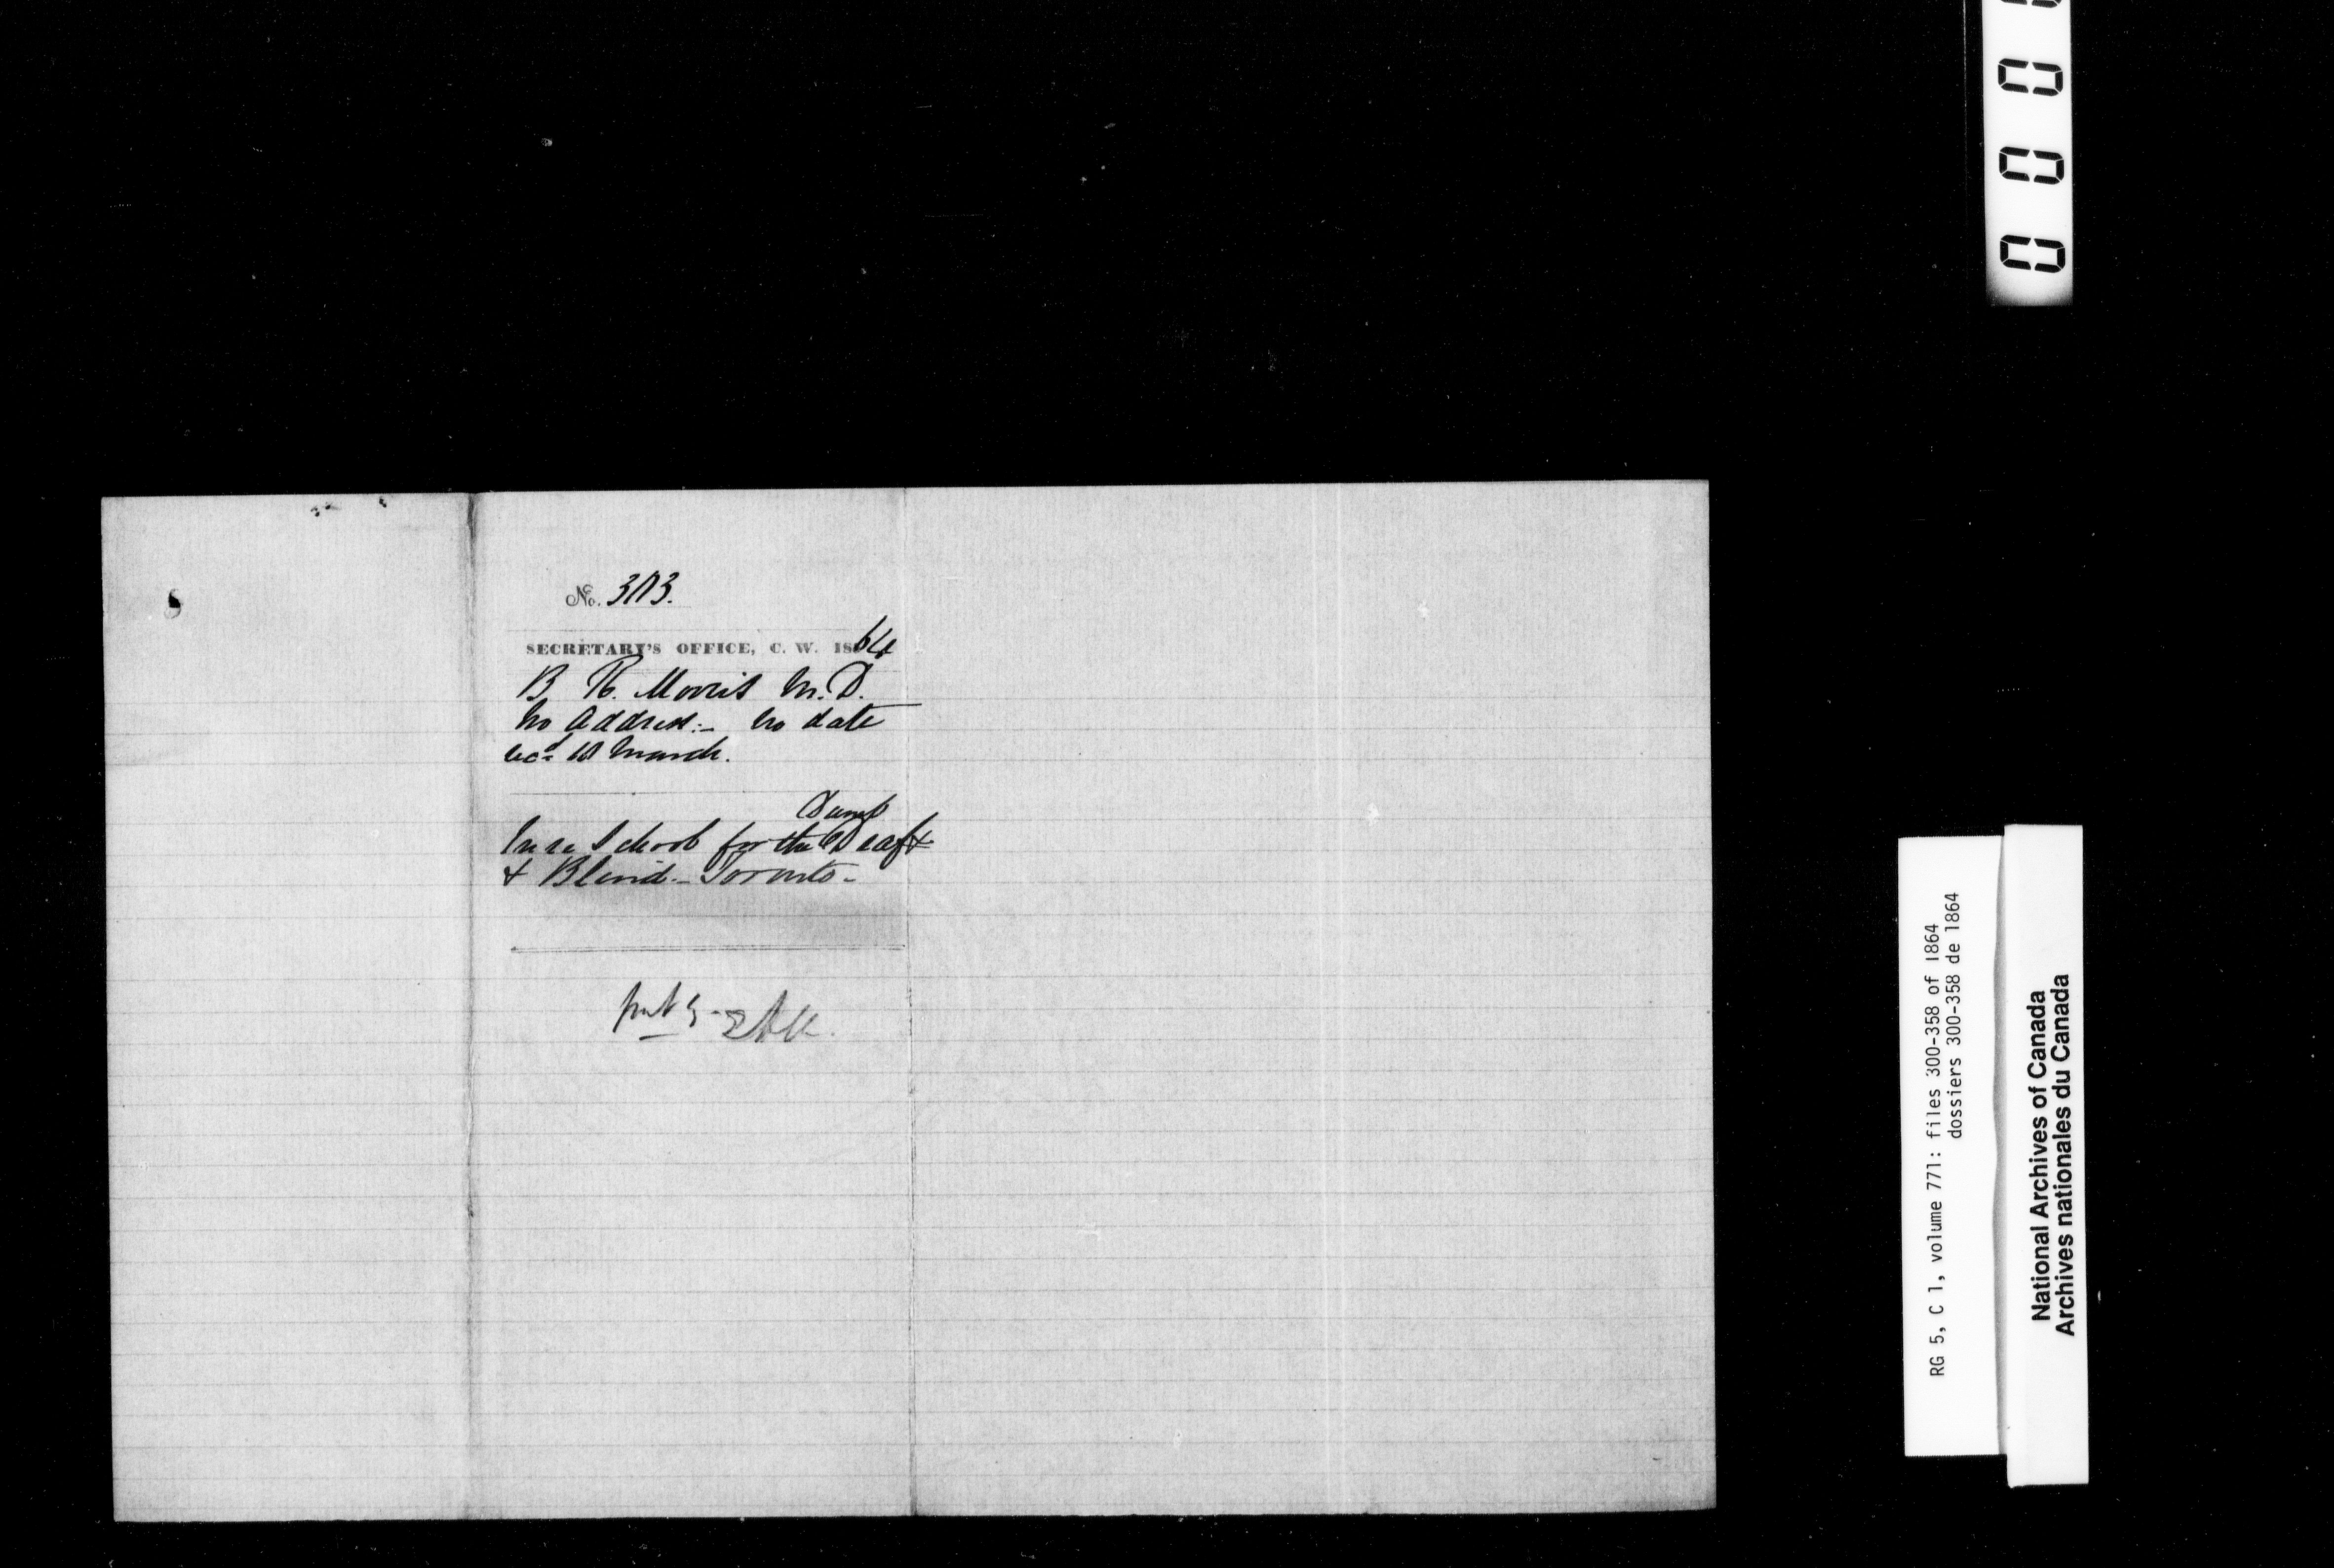 No. 303.
SECRETARY'S OFFICE, C. W. 1864
B. R. Morris M.D.
No Address:- No date
recd 10 March.
Dumb
In re School for the Deaf &
& Blind - Toronto -
RG 5, C 1, volume 771: files 300-358 of 1864
dossiers 300-358 de 1864
National Archives of Canada
Archives nationales du Canada
0 0 0